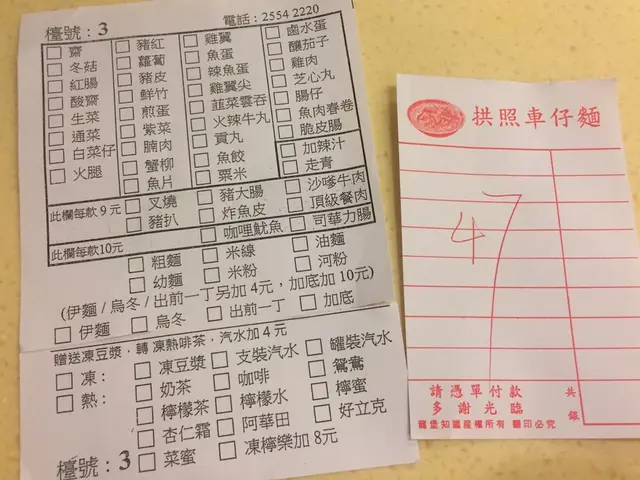 檯號：3 電話：2554 2220
齋 豬紅 雞翼 鹵水蛋
冬菇 蘿蔔 魚蛋 釀茄子
紅腸 豬皮 辣魚蛋 雞肉
酸齋 鮮竹 雞翼尖 芝心丸
生菜 煎蛋 韮菜雲吞 腸仔
通菜 紫菜 火辣牛丸 魚肉春卷
白菜仔 腩肉 貢丸 脆皮腸
火腿 蟹柳 魚餃 加辣汁
魚片 粟米 走青
此欄每款 9 元 叉燒 豬大腸 沙嗲牛肉
豬扒 炸魚皮 頂級餐肉
此欄每款10元 咖哩魷魚 司華力腸
粗麵 米線 油麵
幼麵 米粉 河粉
(伊麵 / 烏冬 / 出前一丁另加 4元，加底加 10元)
伊麵 烏冬 出前一丁 加底
贈送凍豆漿，轉 凍熱啡茶，汽水加 4 元
凍： 凍豆漿 支裝汽水 罐裝汽水
熱： 奶茶 咖啡 鴛鴦
檸檬茶 檸檬水 檸蜜
杏仁霜 阿華田 好立克
檯號：3 菜蜜 凍檸樂加 8元
拱照車仔麵
47
請憑單付款 共
多謝光臨 銀
龍堡知識產權所有 翻印必究